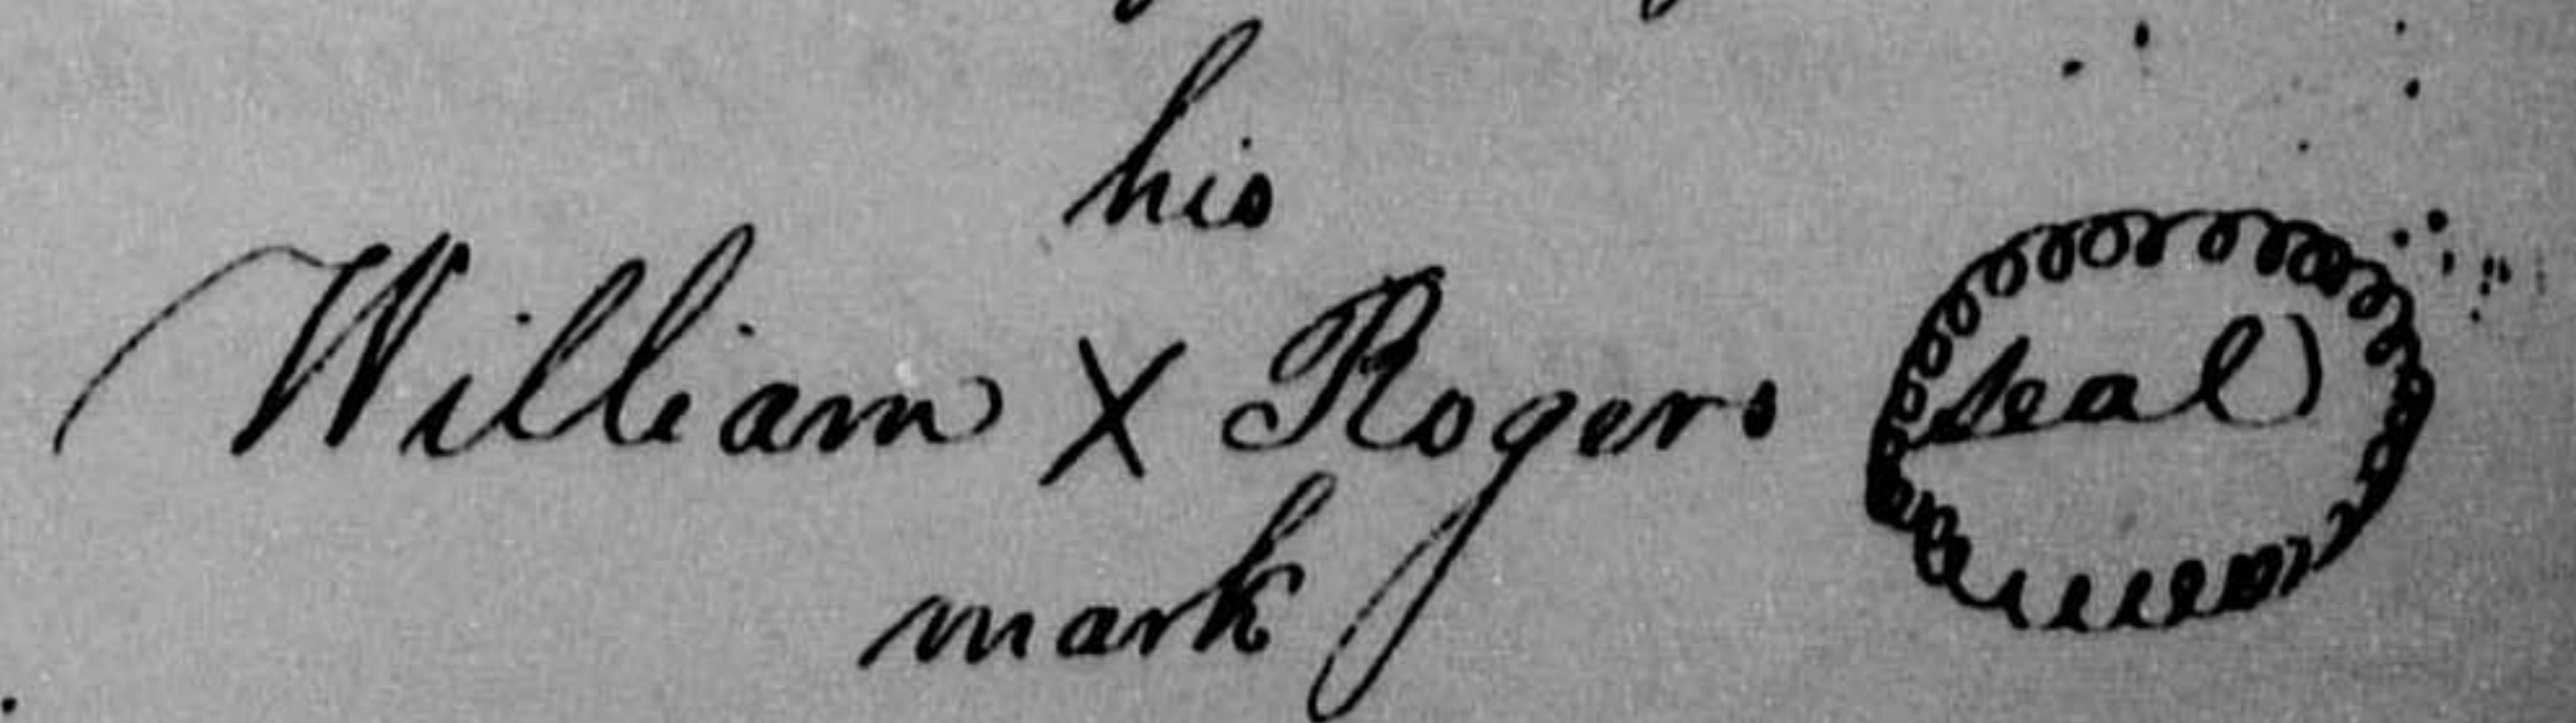 his
William X Rogers seal
mark